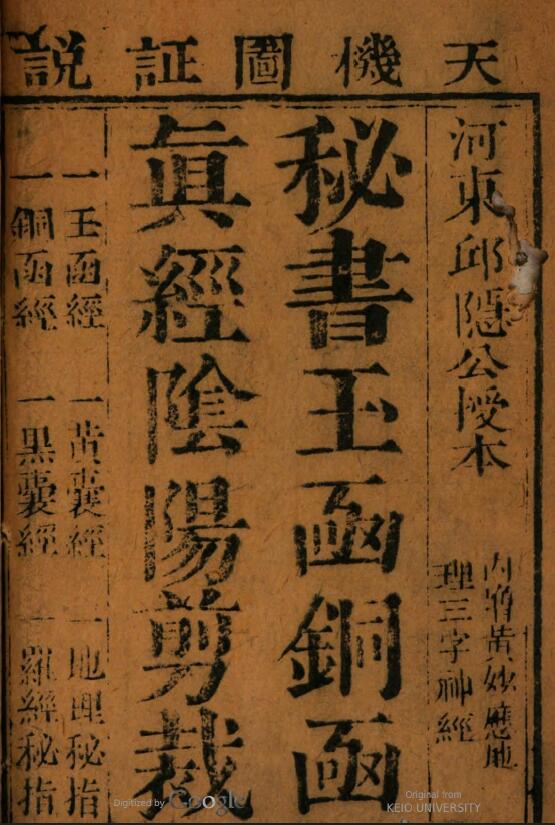 天機圖証説
河東邱隱公授本
内 黄妙應地
理三字神經
秘書玉凾銅凾
眞經隂陽剪裁
一玉凾經 一黄囊經 一地理秘指
一銅凾經 一黒囊經 一羅經秘指
Digitized by Google
Original from
KEIO UNIVERSITY